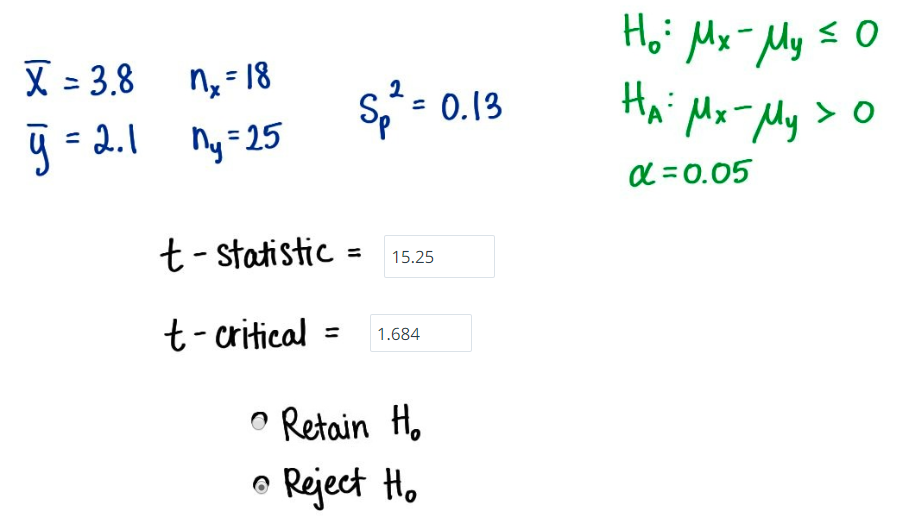 x̄ = 3.8 nₓ = 18
ȳ = 2.1 n_y = 25
S_p² = 0.13
H₀: μₓ - μ_y ≤ 0
H_A: μₓ - μ_y > 0
α = 0.05
t - statistic = 15.25
t - critical = 1.684
Retain H₀
Reject H₀